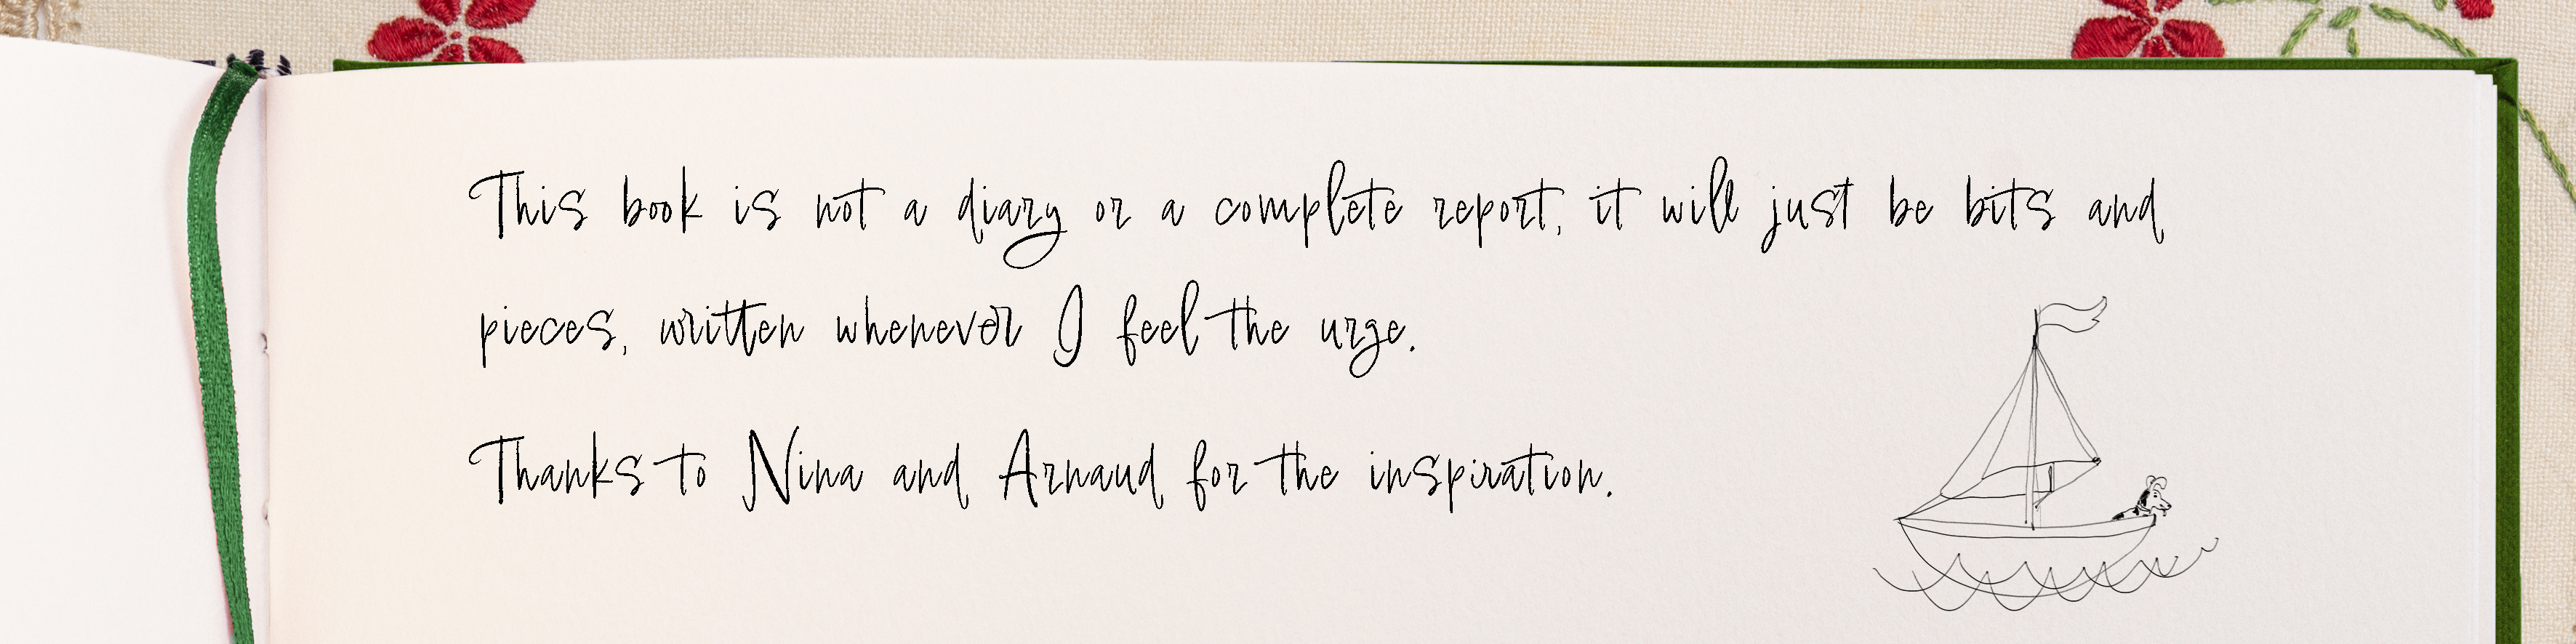 This book is not a diary or a complete report, it will just be bits and
pieces, written whenever I feel the urge.
Thanks to Nina and Arnaud for the inspiration.